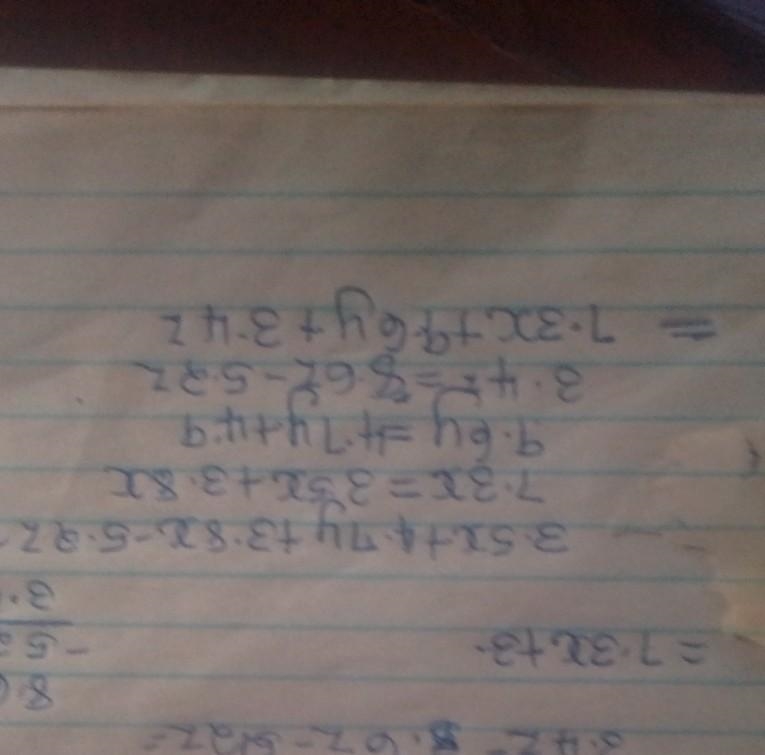 3.4z = 8.6z - 5.2z =
8.
= 7.3x + 3.
- 5.2
3.
3.5x + 4.7y + 3.8x - 5.2z
7.3x = 3.5x + 3.8x
9.6y = 4.7y + 4.9
3.4z = 8.6z - 5.2z
= 7.3x + 9.6y + 3.4z